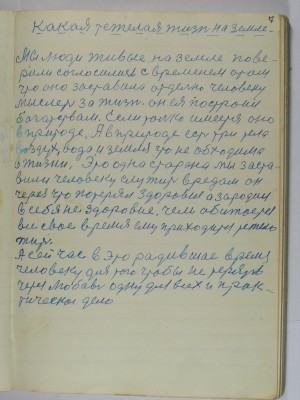 7
Какая тежелая жизн на земле.
Мы люди живые на земле пове-
рили согласились с временем этом
что оно заставило отделно человеку
мыслет за жизн. он ея построил
богатством. Если только имеется оно
в природе, А в природе ест три тела
воздух, вода и земля что необходимо
в жизни, Это одна старона мы заста-
вили человеку смотр вредам он
через что потерял здоровия а зародил
в себя не здоровие, чем обитается
все свое время ему приходится
А сейчас в эро радившае время
человеку для того чтобы не терят
через любов одну для всех и прак-
тическое дело